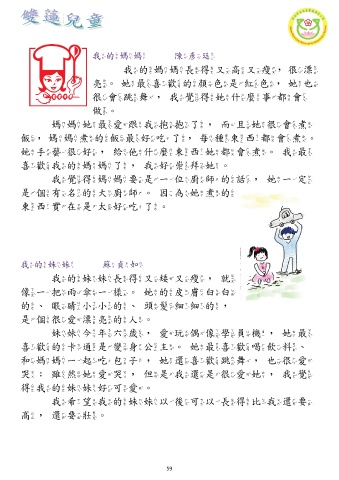 雙蓮兒童
我的媽媽　　陳彥廷
我的媽媽長得又高又瘦，很漂
亮。她最喜歡的顏色是紅色，她也
很會跳舞，我覺得她什麼事都會
做。
媽媽她最愛跟我抱抱了，而且她很會煮
飯，媽媽煮的飯最好吃了，每種東西都會煮。
她手藝很好，給他什麼東西她都會煮。我最
喜歡我的媽媽了，我好崇拜她。
我覺得媽媽要是一位廚師的話，她一定
是個有名的大廚師。因為她煮的
東西實在是太好吃了。
我的妹妹　　蘇貞如
我的妹妹長得又矮又瘦，就
像一把雨傘一樣。她的皮膚白白
的、眼睛小小的、頭髮細細的，
是個很愛漂亮的人。
妹妹今年六歲，愛玩偶像學員機，她最
喜歡的卡通是變身公主。她最喜歡喝飲料、
和媽媽一起吃包子，她還喜歡跳舞，也很愛
哭；雖然她愛哭，但是我還是很愛她，我覺
得我的妹妹好可愛。
我希望我的妹妹以後可以長得比我還要
高，還要壯。
59